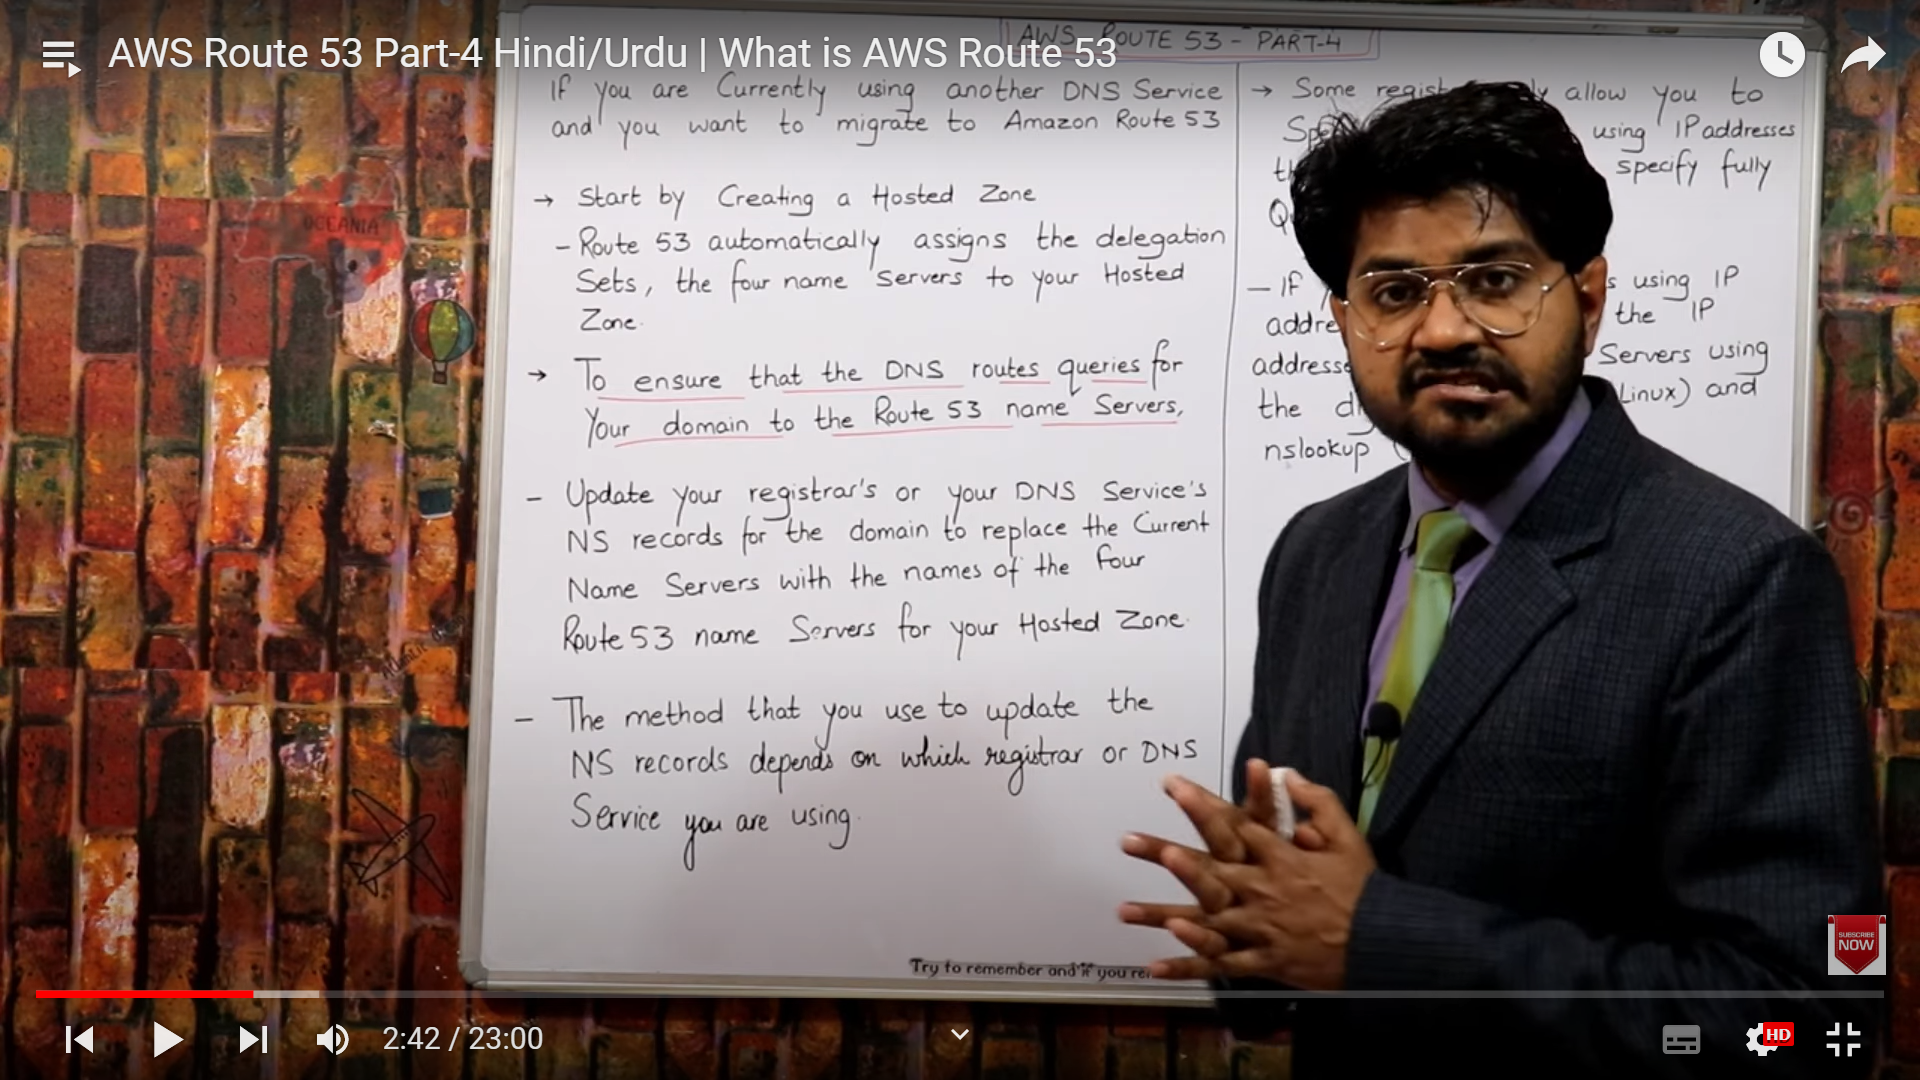 AWS Route 53 Part-4 Hindi/Urdu | What is AWS Route 53
AWS ROUTE 53 - PART-4
If you are Currently using another DNS Service
and you want to migrate to Amazon Route 53
→ Start by Creating a Hosted Zone
- Route 53 automatically assigns the delegation
Sets, the four name Servers to your Hosted
Zone.
→ To ensure that the DNS routes queries for
Your domain to the Route 53 name Servers,
- Update your registrar's or your DNS Service's
NS records for the domain to replace the Current
Name Servers with the names of the four
Route 53 name Servers for your Hosted Zone.
- The method that you use to update the
NS records depends on which registrar or DNS
Service you are using.
→ Some allow you to
using IP addresses
specify fully
- If using IP
the IP
Servers using
the Linux) and
nslookup
OCEANIA
Try to remember and if you
SUBSCRIBE
NOW
2:42 / 23:00
HD